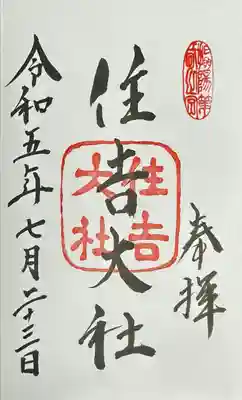 奉拝
住吉大社
住吉
大社
令和五年七月二十三日